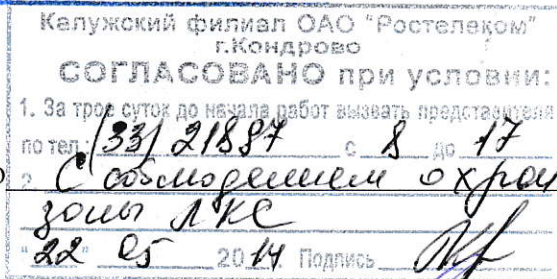 Калужский филиал ОАО "Ростелеком"
г.Кондрово
СОГЛАСОВАНО при условии:
1. За трое суток до начала работ вызвать представителя
по тел.: (33) 21887 с 8 до 17
2. С соблюдением охран
зоны ЛКС
"22" 05 2014 Подпись